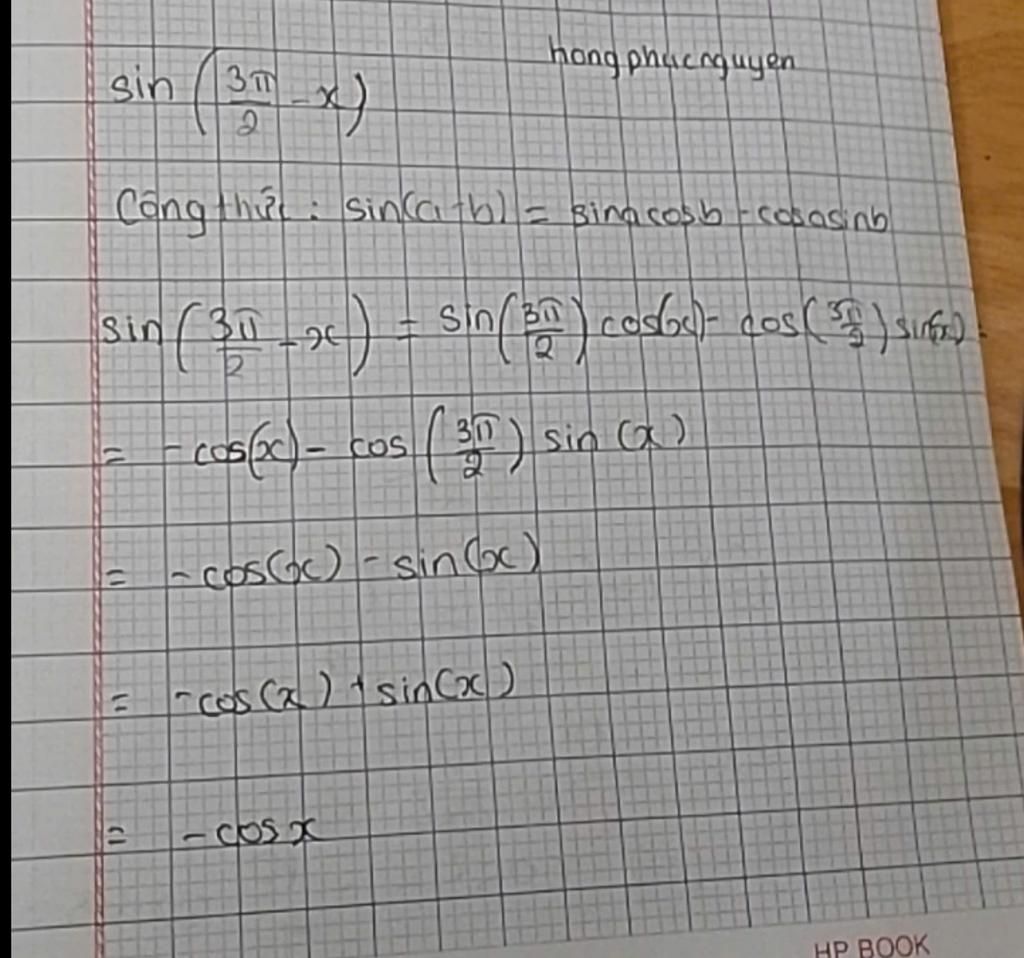 hongphucnguyen
sin (3π/2 - x)
Công thức : sin(a+b) = sinacosb + cosasinb
sin (3π/2 - x) = sin(3π/2) cos(x) - cos(3π/2) sin(x)
= -cos(x) - cos (3π/2) sin (x)
= -cos(x) - sin(x)
= -cos(x) + sin(x)
= -cosx
HP BOOK